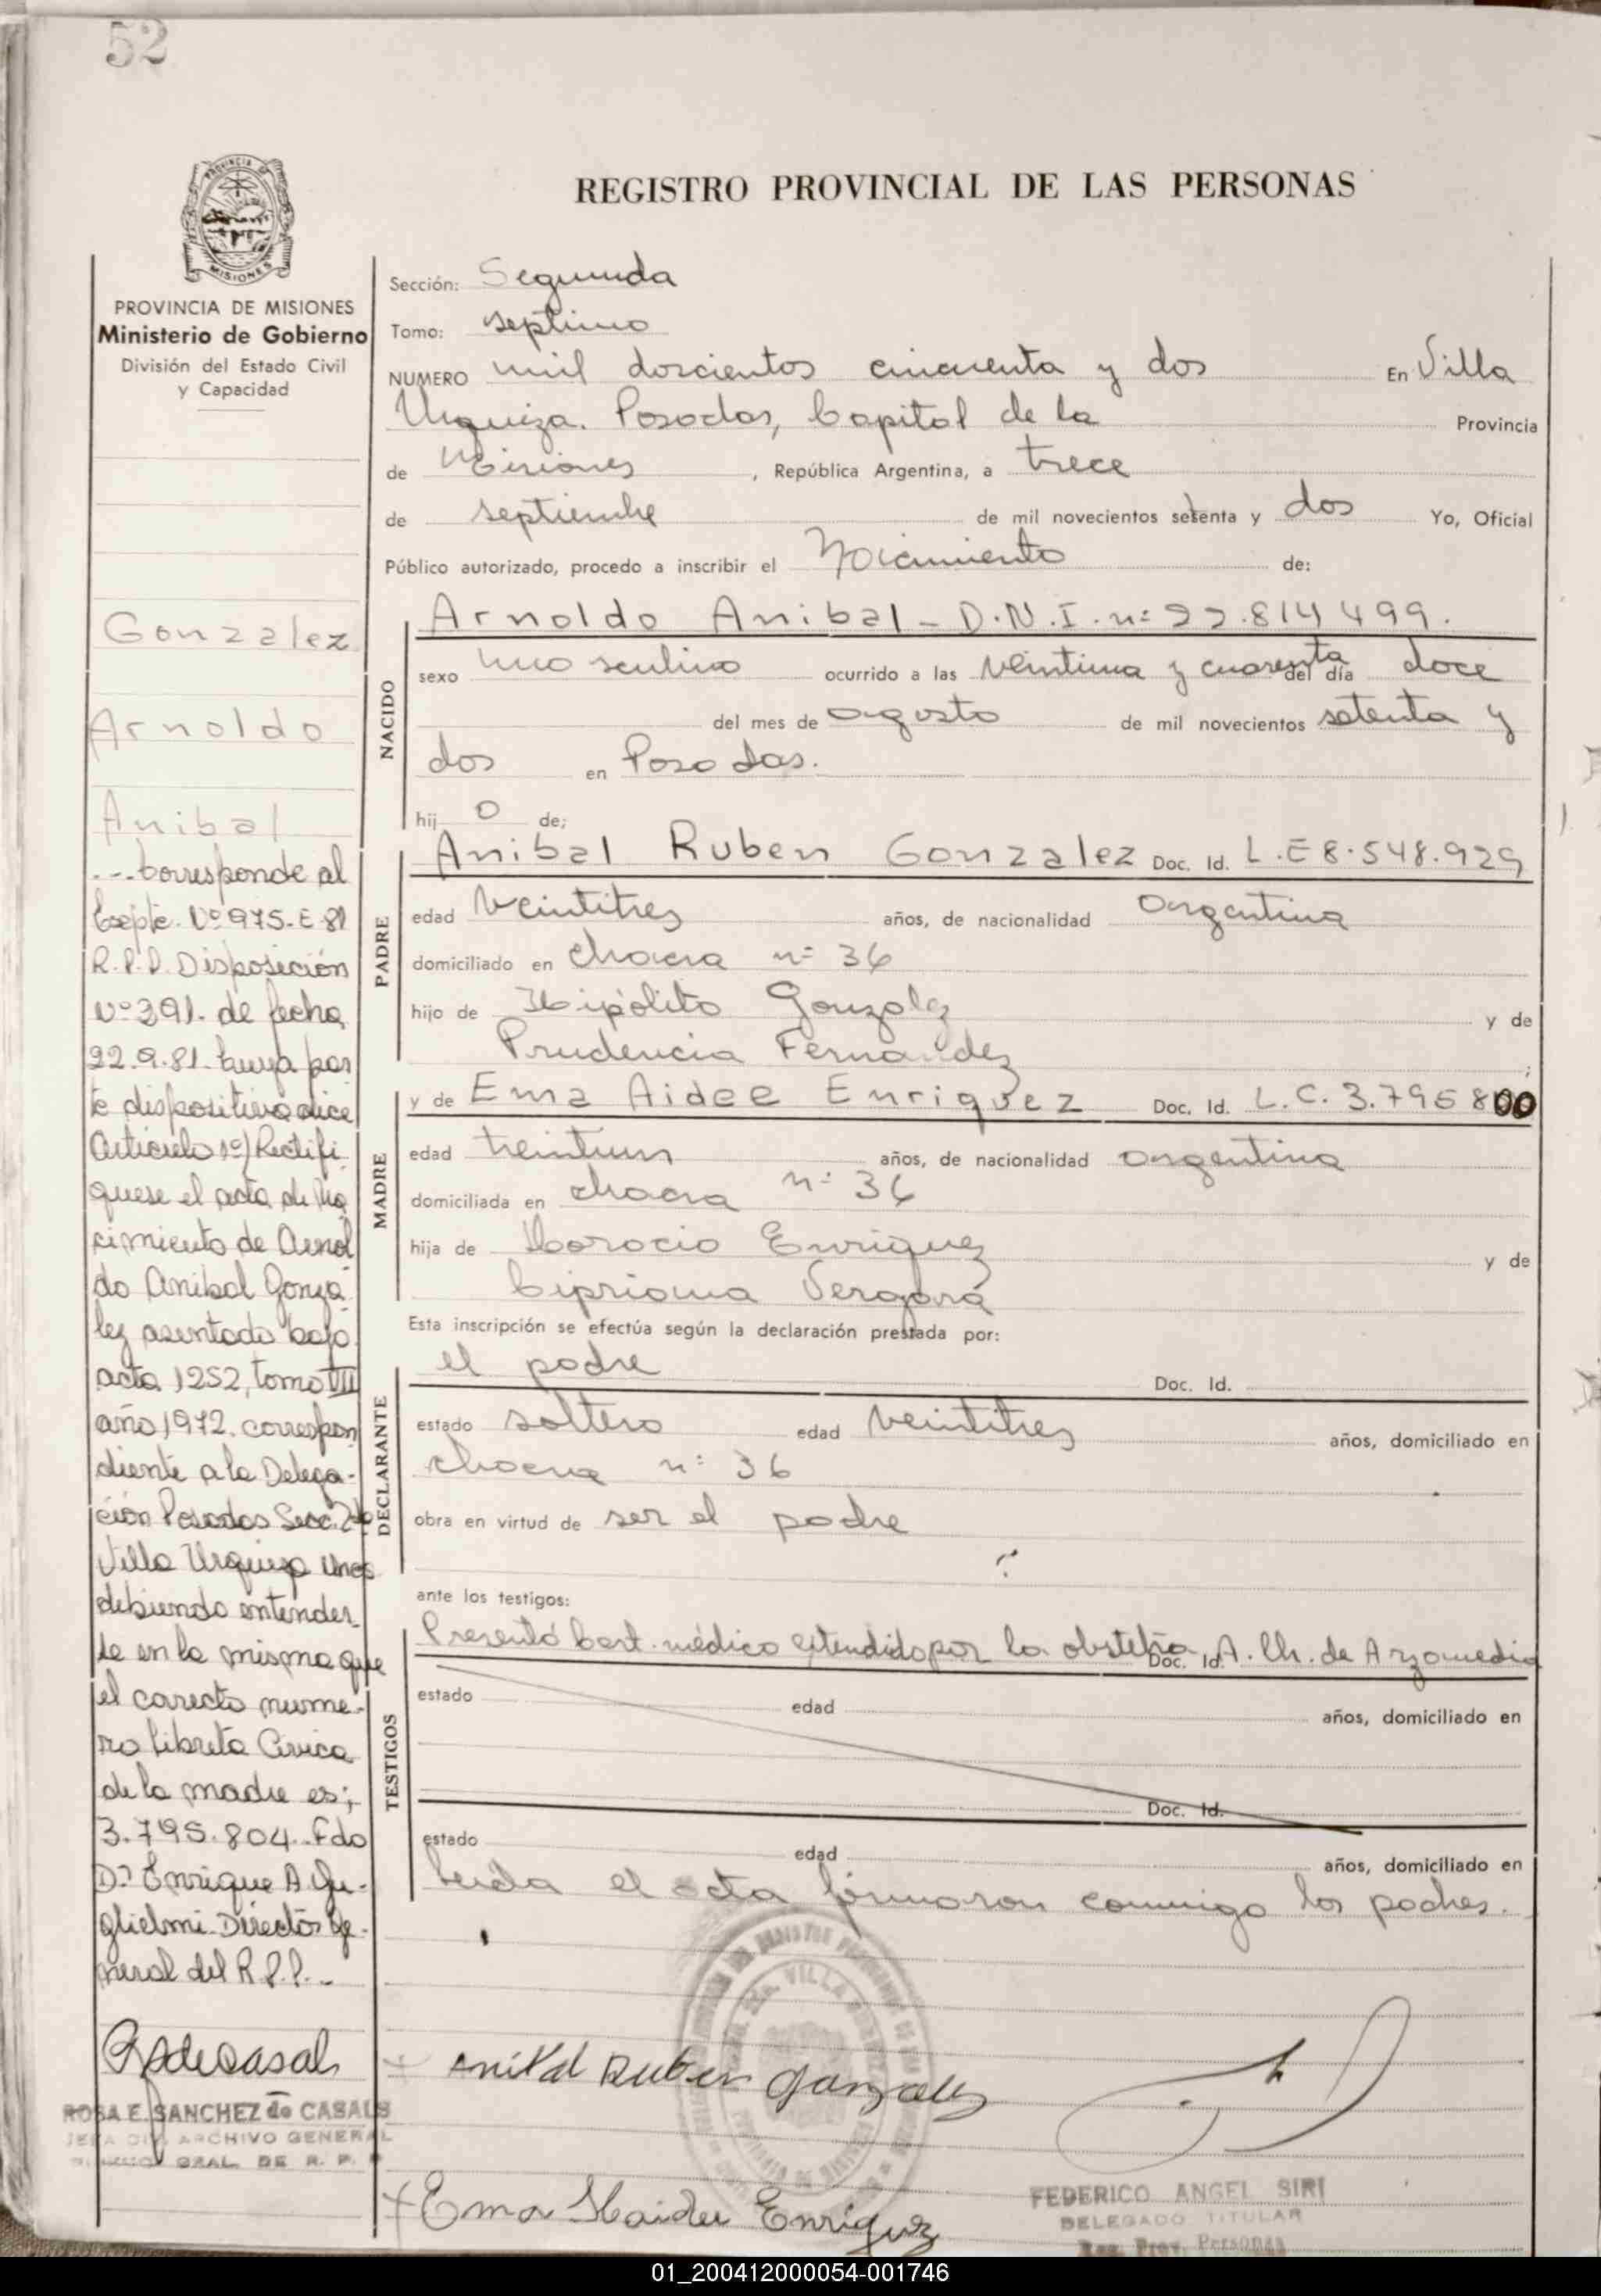 52
PROVINCIA DE
MISIONES
PROVINCIA DE MISIONES
Ministerio de Gobierno
División del Estado Civil
y Capacidad
REGISTRO PROVINCIAL DE LAS PERSONAS
Sección: Segunda
Tomo: septimo
NUMERO mil doscientos cincuenta y dos En Villa
Urquiza. Posadas, Capital de la Provincia
de Misiones, República Argentina, a trece
de septiembre de mil novecientos setenta y dos Yo, Oficial
Público autorizado, procedo a inscribir el Nacimiento de:
NACIDO
Arnoldo Anibal - D.N.I. nº 22.814499.
sexo masculino ocurrido a las veintiuna y cuarenta del día doce
del mes de agosto de mil novecientos setenta y
dos en Posadas.
hij o de;
PADRE
Anibal Ruben Gonzalez Doc. Id. L.E 8.548.929
edad veintitres años, de nacionalidad argentina
domiciliado en chacra nº 36
hijo de Hipólito Gonzalez y de
Prudencia Fernandez ;
MADRE
y de Ema Aidee Enriquez Doc. Id. L.C. 3.795800
edad treintiun años, de nacionalidad argentina
domiciliada en chacra nº 36
hija de Horacio Enriquez y de
Cipriana Vergara
Esta inscripción se efectúa según la declaración prestada por:
DECLARANTE
el padre Doc. Id.
estado soltero edad veintitres años, domiciliado en
chacra nº 36
obra en virtud de ser el padre
ante los testigos:
TESTIGOS
Presentó Cert. médico extendido por la obstetra Doc. Id. A. Ch. de Arzamedia
estado edad años, domiciliado en
Doc. Id.
estado edad años, domiciliado en
Leida el acta firmaron conmigo los padres.
Anibal Ruben Gonzalez
Ema Haidee Enriquez
FEDERICO ANGEL SIRI
DELEGADO TITULAR
Reg. Prov. Personas
Gonzalez
Arnoldo
Anibal
...Corresponde al
Expte. Nº 975-E-81
R.P.P. Disposición
Nº 391. de fecha
22.9.81. cuya par
te dispositiva dice
Articulo 1º) Rectifi
quese el acta de Na
cimiento de Arnol
do Anibal Gonza
lez asentada bajo
acta 1252, tomo VII
año 1972. correspon
diente a la Delega-
ción Posadas Secc. 2da
Villa Urquiza Mnes
debiendo entender
se en la misma que
el correcto nume-
ro Libreta Civica
de la madre es;
3.795.804. Fdo
Dr Enrique A. Gu-
glielmi. Director Ge-
neral del R.P.P.-
ROSA E. SANCHEZ de CASALS
JEFA DIV. ARCHIVO GENERAL
GRAL. DE R. P. P
01_200412000054-001746